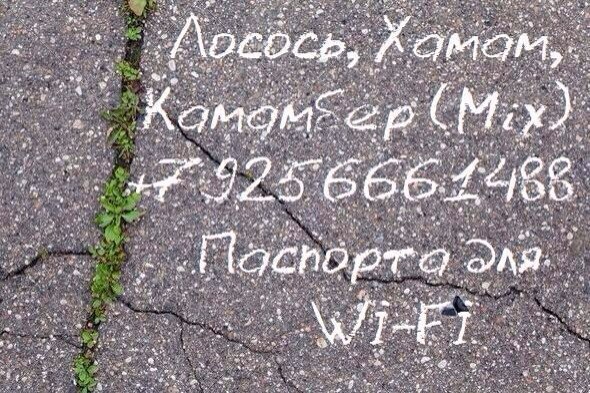 Лосось, Хамам,
Камамбер (Mix)
+7 925 666 1488
Паспорта для
Wi-Fi